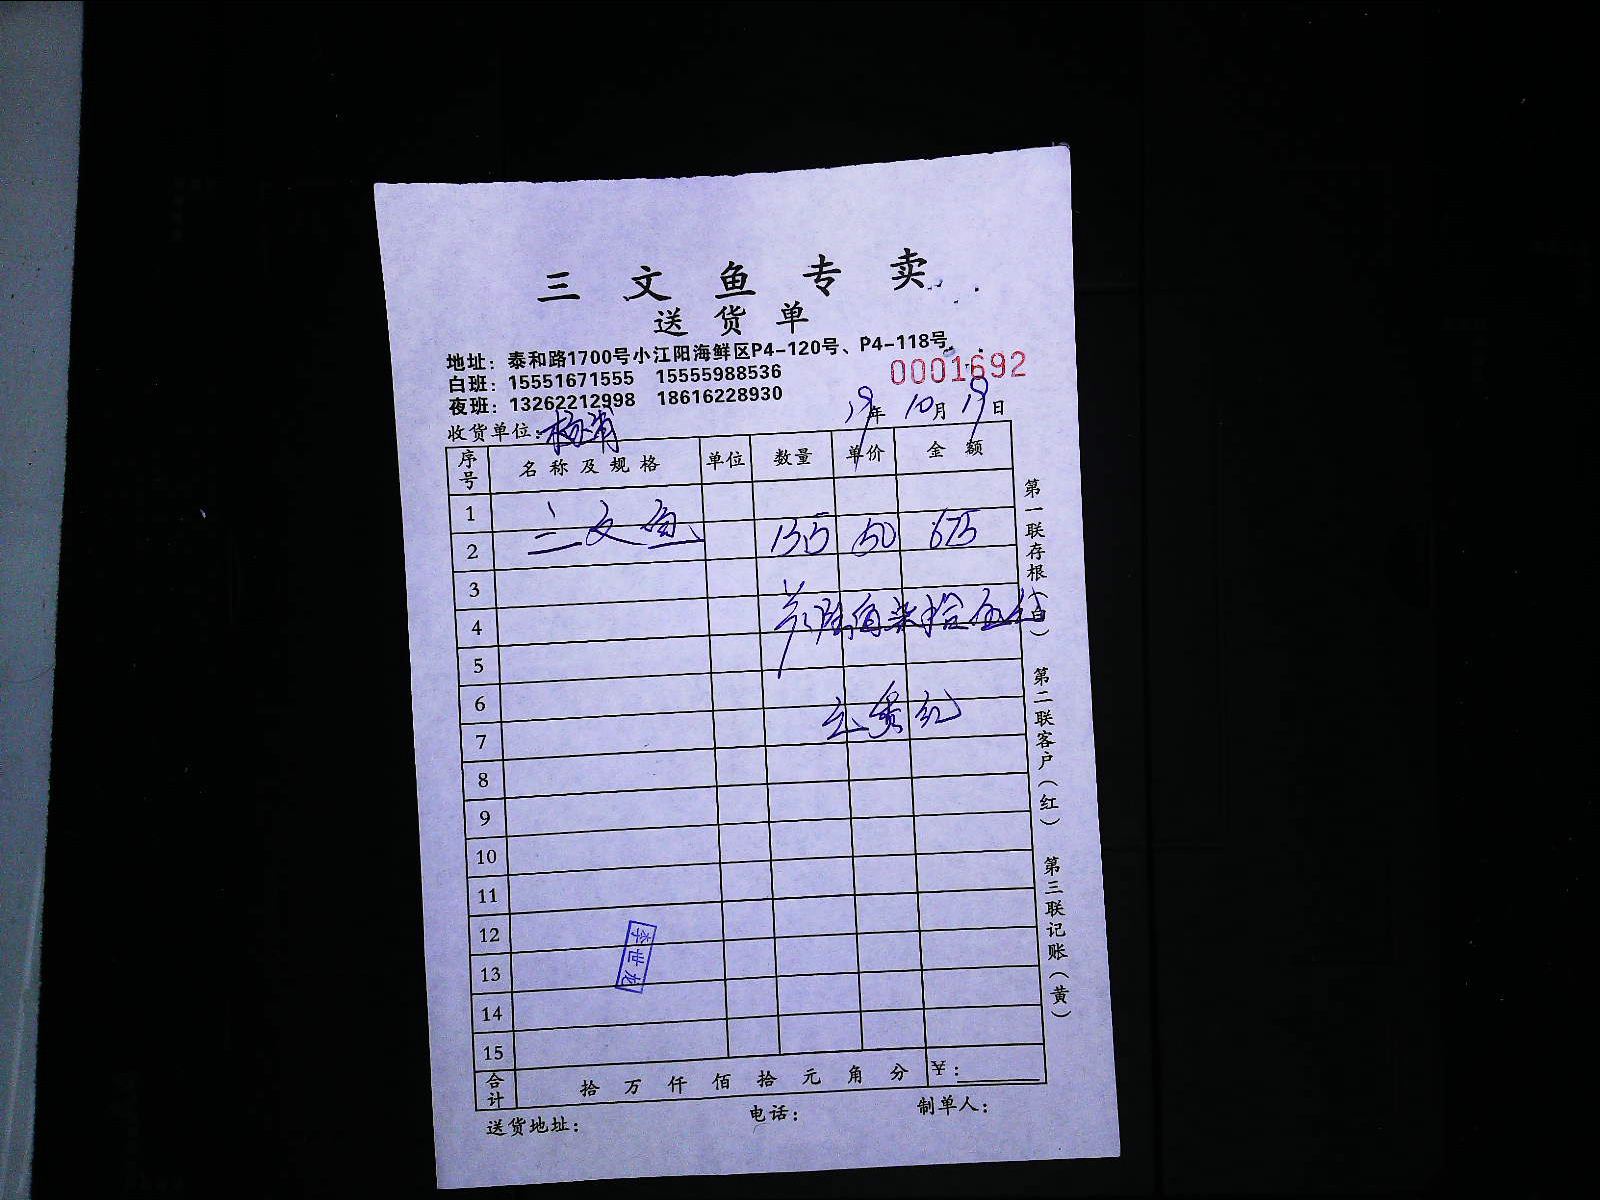 三文鱼专卖
送货单
地址：泰和路1700号小江阳海鲜区P4-120号、P4-118号
白班：15551671555 15555988536
0001692
夜班：13262212998 18616228930
19年10月19日
收货单位：杨浦
序号 名称及规格 单位 数量 单价 金额
1
2 三文鱼 13.5 50 675
3
4 陆佰柒拾伍
5
6
7
8
9
10
11
12
13
14
15
李世龙
合计 拾 万 仟 佰 拾 元 角 分 ¥：
送货地址： 电话： 制单人：
第一联存根（白） 第二联客户（红） 第三联记账（黄）